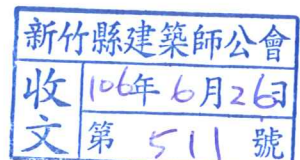 新竹縣建築師公會
收文
106年6月26日
第511號